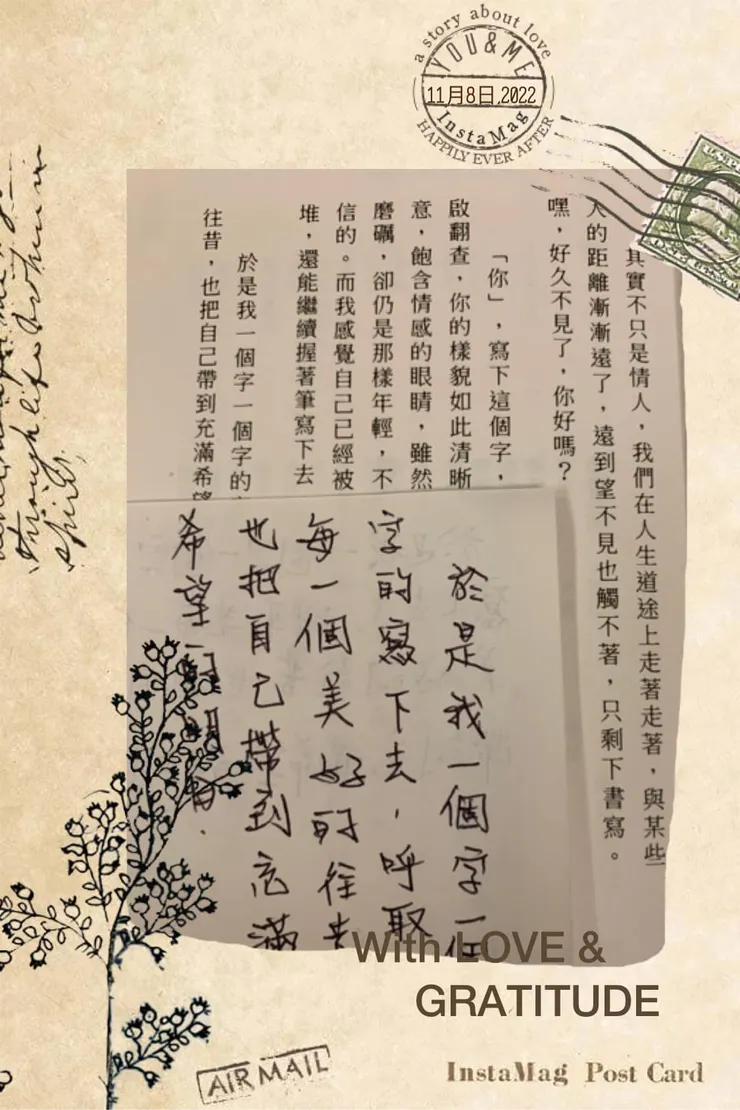 a story about love
YOU&ME
11月8日,2022
InstaMag
HAPPILY EVER AFTER
其實不只是情人，我們在人生道途上走著走著，與某些
人的距離漸漸遠了，遠到望不見也觸不著，只剩下書寫。
嘿，好久不見了，你好嗎？
「你」，寫下這個字，
啟翻查，你的樣貌如此清晰
意，飽含情感的眼睛，雖然
磨礪，卻仍是那樣年輕，不
信的。而我感覺自己已經被
堆，還能繼續握著筆寫下去
於是我一個字一個字的
往昔，也把自己帶到充滿希望
於是我一個字一個
字的寫下去，呼取
每一個美好的往昔
也把自己帶到充滿
希望的
With LOVE &
GRATITUDE
AIR MAIL
InstaMag Post Card